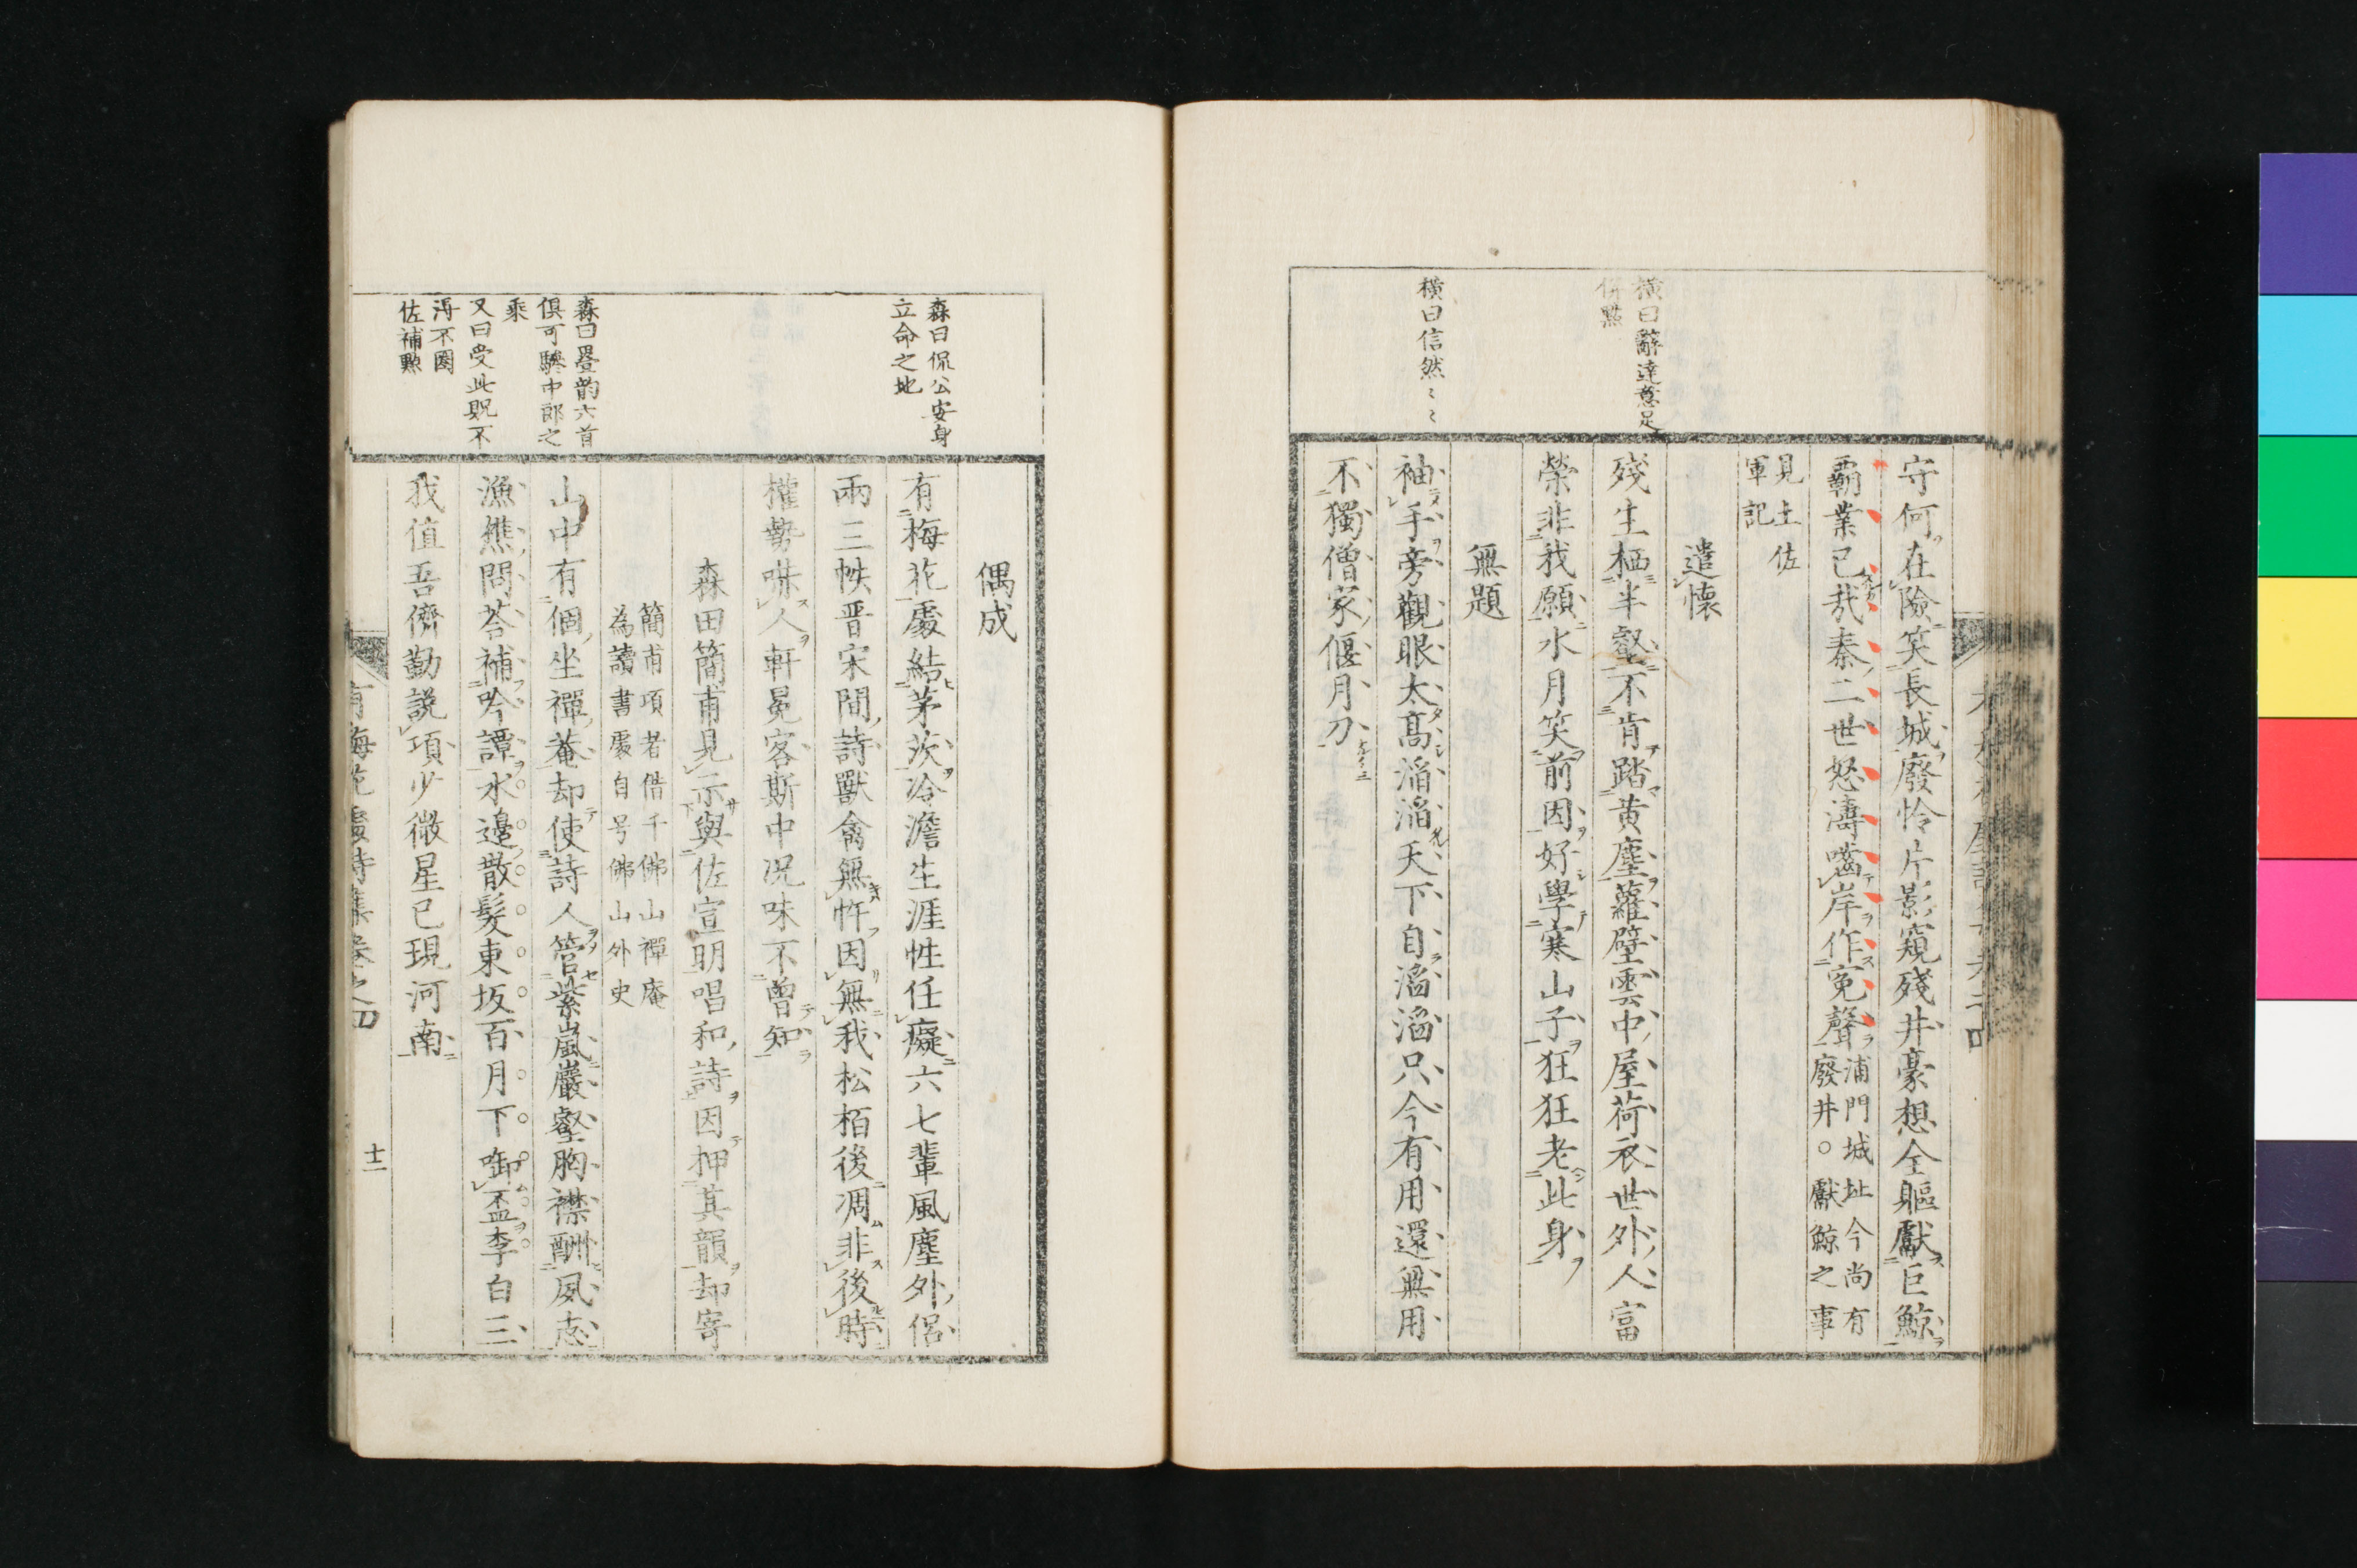 守何在險笑長城廢怜片影窺殘井豪想全軀獻巨鯨
覇業已哉秦二世怒濤噛岸作冤聲
浦門城址今尚有
廢井○獻鯨之事
見土佐
軍記
遣懷
殘生栖半壑不肯踏黃塵蘿壁雲中屋荷衣世外人富
榮非我願水月笑前因好學寒山子狂狂老此身
無題
袖手旁觀眼太高滔滔天下自滔滔只今有用還無用
不獨僧家偃月刀
橫曰辭達意足
併點
橫曰信然〻〻
偶成
有梅花處結茅茨冷澹生涯性任癡六七輩風塵外侶
兩三帙晋宋間詩獸禽無忤因無我松栢後凋非後時
權勢咻人軒冕客斯中况味不曾知
森田簡甫見示與佐宣明唱和詩因押其韻却寄
簡甫項者借千佛山禪庵
為讀書處自号佛山外史
山中有個坐禪菴却使詩人管紫嵐巖壑胸襟酬夙志
漁樵問荅補吟譚水邊散髮東坂百月下啣盃李白三
我值吾儕勤說項少微星已現河南
森曰侃公安身
立命之地
森曰疊韵六首
俱可驂中郎之
乘
又曰受此貺不
淂不圏
佐補㸃
有梅花處詩集卷之四
十一